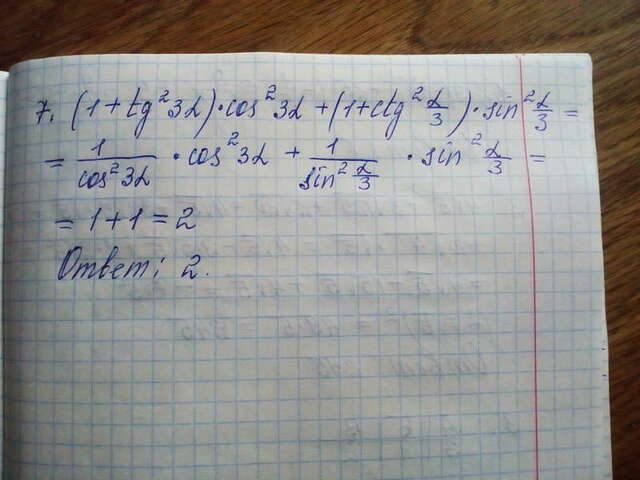 7. (1+tg²3α)·cos²3α+(1+ctg²α/3)·sin²α/3=
= 1/cos²3α · cos²3α + 1/sin²α/3 · sin²α/3 =
= 1+1=2
Ответ: 2.